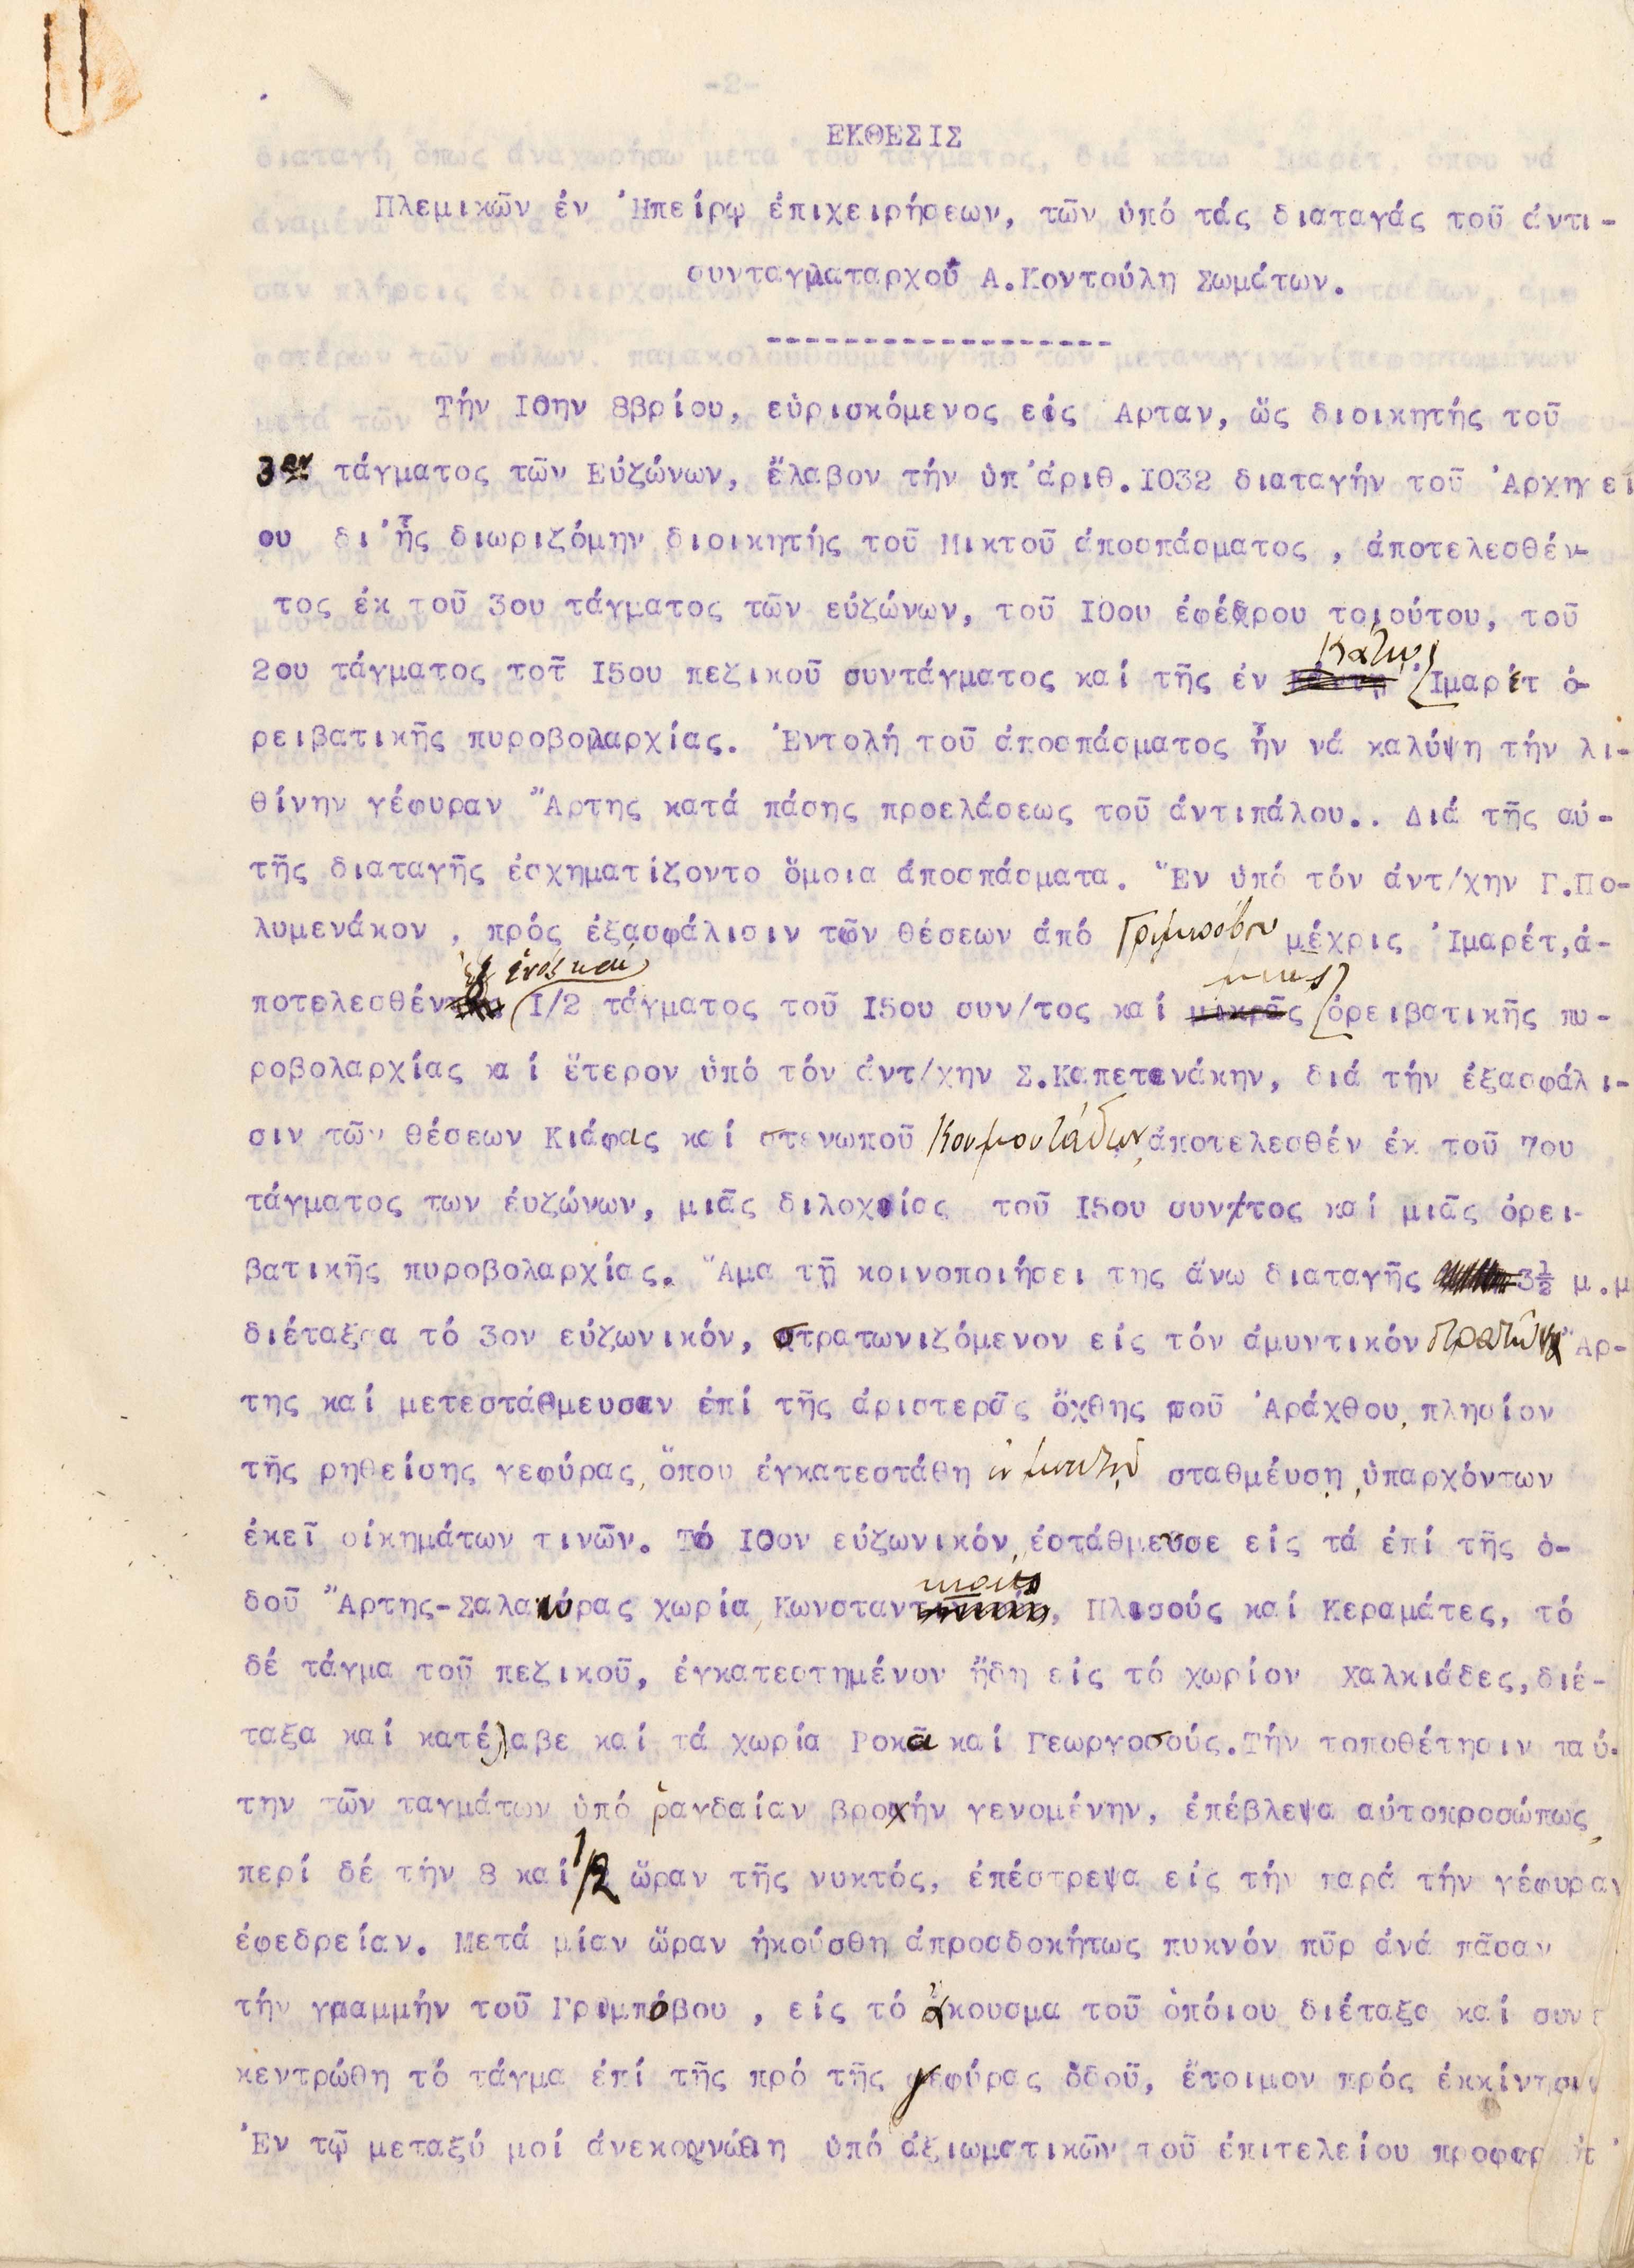 ΕΚΘΕΣΙΣ
Πλεμικῶν ἐν Ἠπείρῳ ἐπιχειρήσεων, τῶν ὑπό τάς διαταγάς τοῦ ἀντι-
συνταγματαρχοῦ Α.Κοντούλη Σωμάτων.
------------------
Τήν 10ην 8βρίου, εὑρισκόμενος εἰς Αρταν, ὥς διοικητής τοῦ
3ου τάγματος τῶν Εὐζώνων, ἔλαβον τήν ὑπ'ἀριθ.1032 διαταγήν τοῦ Ἀρχηγεί
ου δι'ἧς διωριζόμην διοικητής τοῦ Μικτοῦ ἀποσπάσματος , ἀποτελεσθέν-
τος ἐκ τοῦ 3ου τάγματος τῶν εὐζώνων, τοῦ 10ου ἐφέδρου τοιούτου, τοῦ
2ου τάγματος τοῦ 15ου πεζικοῦ συντάγματος καί τῆς ἐν Κάτω Ἰμαρέτ ὀ-
ρειβατικῆς πυροβολαρχίας. Ἐντολή τοῦ ἀποσπάσματος ἦν νά καλύψη τήν λι-
θίνην γέφυραν Ἄρτης κατά πάσης προελάσεως τοῦ ἀντιπάλου.. Διά τῆς αὐ-
τῆς διαταγῆς ἐσχηματίζοντο ὅμοια ἀποσπάσματα. Ἕν ὑπό τόν ἀντ/χην Γ.Πο-
λυμενάκον , πρός ἐξασφάλισιν τῶν θέσεων ἀπό Γριμπόβου μέχρις Ἰμαρέτ,ἀ-
ποτελεσθέν ἐξ ἑνός και 1/2 τάγματος τοῦ 15ου συν/τος καί μιας ὀρειβατικῆς πυ-
ροβολαρχίας κα ί ἕτερον ὑπό τόν ἀντ/χην Σ.Καπετενάκην, διά τήν ἐξασφάλι-
σιν τῶν θέσεων Κιάφας καί στενωποῦ Κουμουτάδων, ἀποτελεσθέν ἐκ τοῦ 7ου
τάγματος των ἐυζώνων, μιᾶς διλοχίας τοῦ 15ου συν/τος καί μιᾶς ὀρει-
βατικῆς πυροβολαρχίας. Ἅμα τῇ κοινοποιήσει της ἄνω διαταγῆς 3½ μ.μ
διέταξα τό 3ον εὐζωνικόν, στρατωνιζόμενον εἰς τόν ἀμυντικόν στρατῶνα Ἄρ-
της καί μετεστάθμευσεν ἐπί τῆς ἀριστερᾶς ὄχθης τοῦ Ἀράχθου, πλησίον
τῆς ρηθείσης γεφύρας, ὅπου ἐγκατεστάθη σταθμέυση, ὑπαρχόντων
ἐκεῖ οἰκημάτων τινῶν. Τό 10ον εὐζωνικόν, ἐστάθμευσε εἰς τά ἐπί τῆς ὀ-
δοῦ Ἄρτης-Σαλαώρας χωρία, Κωνσταντ, Πλησούς καί Κεραμάτες, τό
δέ τάγμα τοῦ πεζικοῦ, ἐγκατεστημένον ἤδη εἰς τό χωρίον Χαλκιάδες,διέ-
ταξα καί κατέλαβε καί τά χωρία Ροκᾶ καί Γεωργοσούς.Τήν τοποθέτησιν ταύ-
την τῶν ταγμάτων ὑπό ῥαγδαίαν βροχήν γενομένην, ἐπέβλεψα αὐτοπροσώπως,
περί δέ τήν 8 καί 1/2 ὥραν τῆς νυκτός, ἐπέστρεψα εἰς τήν παρά τήν γέφυραν
ἐφεδρείαν. Μετά μίαν ὥραν ἠκούσθη ἀπροσδοκήτως πυκνόν πῦρ ἀνά πᾶσαν
τήν γραμμήν τοῦ Γριμπόβου , εἰς τό ἄκουσμα τοῦ ὁπόιου διέταξα καί συνε
κεντρώθη τό τάγμα ἐπί τῆς πρό τῆς γεφύρας ὁδοῦ, ἕτοιμον πρός ἐκκίνησιν
Ἐν τῷ μεταξύ μοί ἀνεκοινώθη ὑπό ἀξιωματικῶν τοῦ ἐπιτελείου προφορ